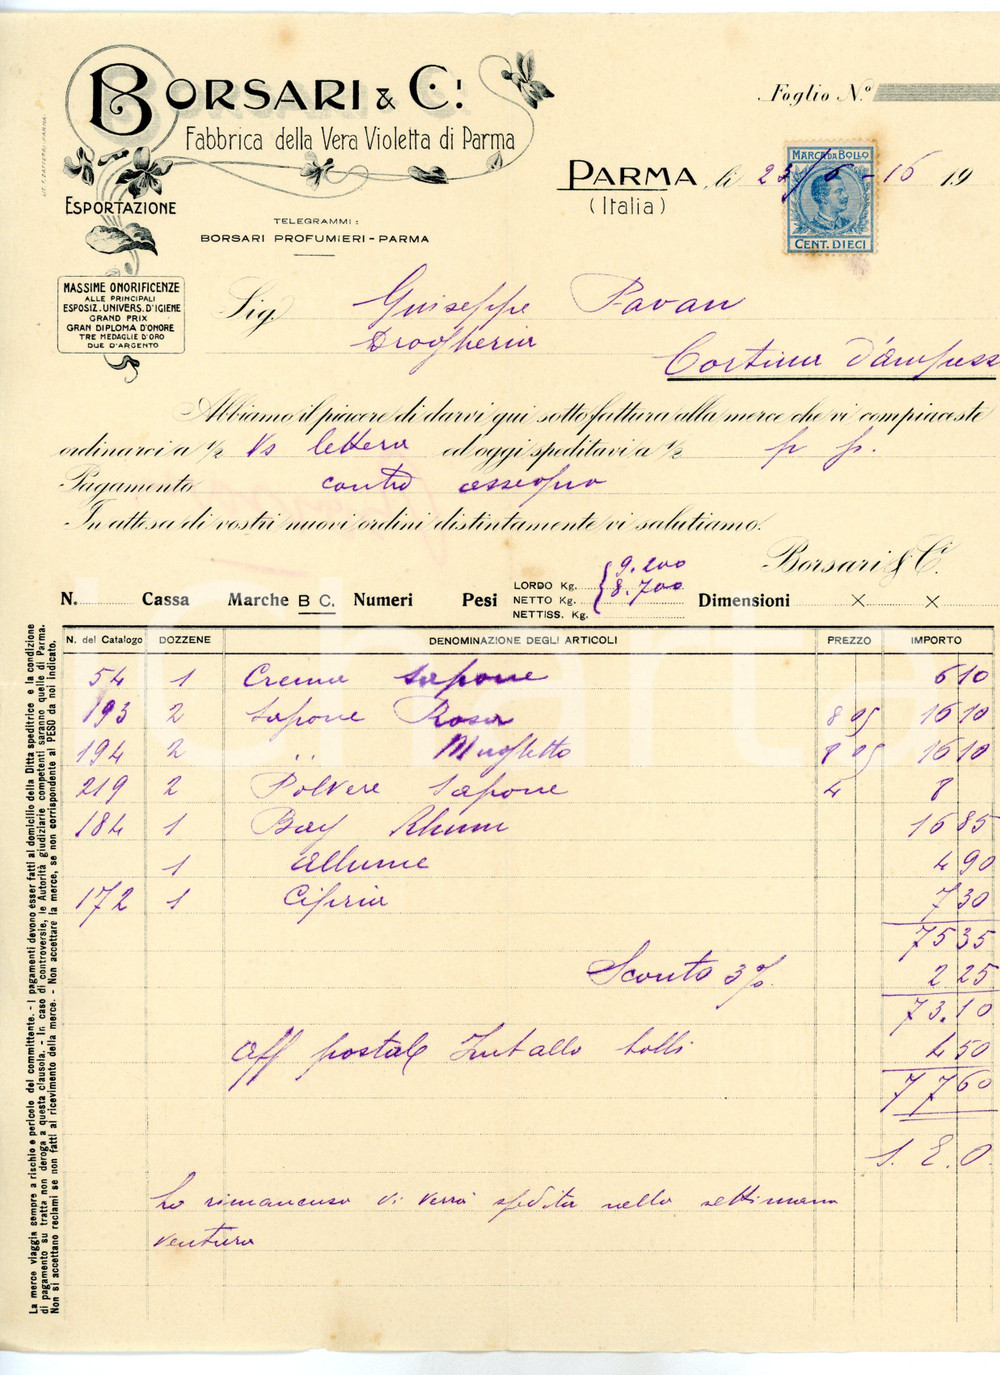 BORSARI & C.i
Fabbrica della Vera Violetta di Parma
ESPORTAZIONE
TELEGRAMMI:
BORSARI PROFUMIERI - PARMA
MASSIME ONORIFICENZE
ALLE PRINCIPALI
ESPOSIZ. UNIVERS. D'IGIENE
GRAND PRIX
GRAN DIPLOMA D'ONORE
TRE MEDAGLIE D'ORO
DUE D'ARGENTO
Foglio N.o
PARMA, li 23/6 - 16 19
(Italia)
MARCA DA BOLLO
CENT. DIECI
Sig. Guiseppe Pavan
Drogheria
Cortina d'ampezz
Abbiamo il piacere di darvi qui sotto fattura alla merce che vi compiaceste
ordinarci a 1/2 Vs lettera ed oggi speditavi a 1/2 p p.
Pagamento contro assegno
In attesa di vostri nuovi ordini distintamente vi salutiamo.
Borsari & C.i
N. Cassa Marche B C. Numeri Pesi
LORDO Kg. 9.200
NETTO Kg. 8.700
NETTISS. Kg.
Dimensioni × ×
N. del Catalogo DOZZENE DENOMINAZIONE DEGLI ARTICOLI PREZZO IMPORTO
54 1 Crema sapone 6 10
193 2 Sapone Rosa 8 05 16 10
194 2 " Mughetto 8 05 16 10
219 2 Polvere Sapone 4 8
184 1 Bay Rhum 16 85
1 allume 4 90
172 1 Cipria 7 30
75 35
Sconto 3% 2 25
73.10
Aff postale Imballo bolli 4 50
77 60
S. E. O.
La rimanenza vi verrà spedita nella settimana
ventura
La merce viaggia sempre a rischio e pericolo del committente. - I pagamenti devono esser fatti al domicilio della Ditta speditrice e la condizione
di pagamento su tratta non deroga a questa clausola. - In caso di controversie, le Autorità giudiziarie competenti saranno quelle di Parma.
Non si accettano reclami se non fatti al ricevimento della merce. - Non accettare la merce, se non corrispondente al PESO da noi indicato.